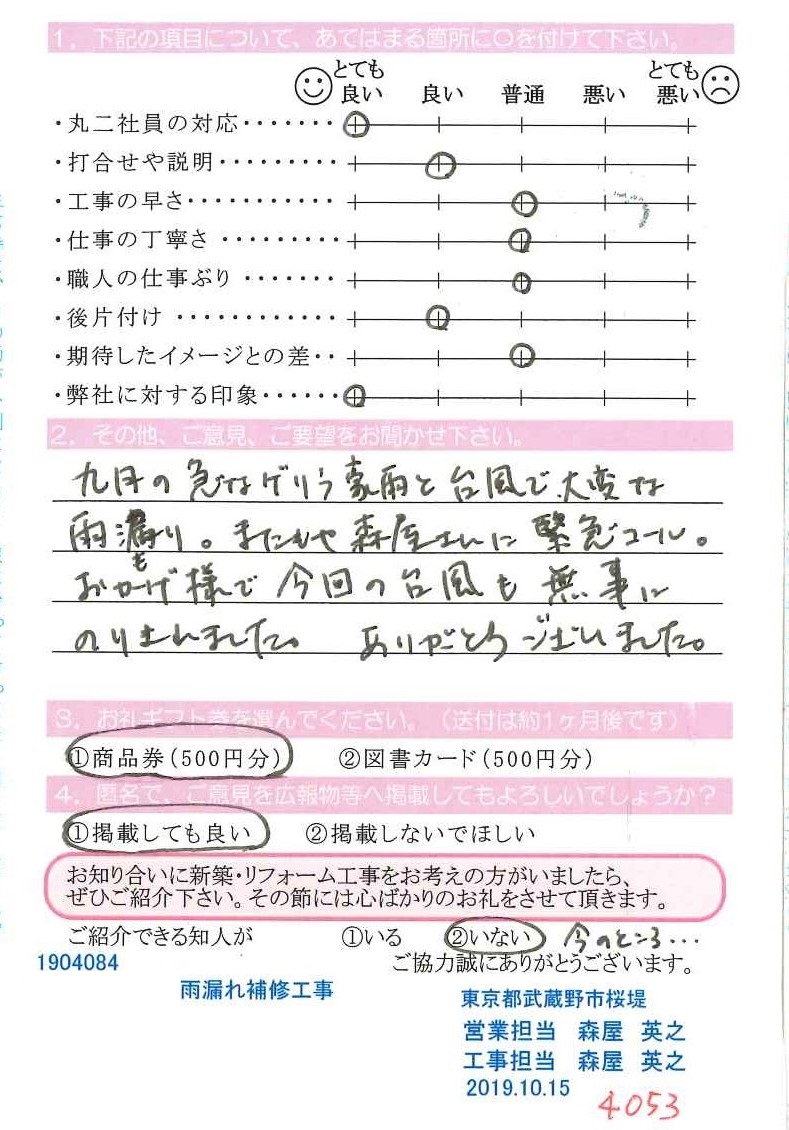 1．下記の項目について、あてはまる箇所に○を付けて下さい。
とても良い 良い 普通 悪い とても悪い
・丸二社員の対応・・・・・・・
・打合せや説明・・・・・・・・・
・工事の早さ・・・・・・・・・・・
・仕事の丁寧さ・・・・・・・・・
・職人の仕事ぶり・・・・・・・
・後片付け・・・・・・・・・・・・
・期待したイメージとの差・・
・弊社に対する印象・・・・・・
2．その他、ご意見、ご要望をお聞かせ下さい。
九月の急なゲリラ豪雨と台風で大変な
雨漏り。またもや森屋さんに緊急コール。
おかげ様で今回の台風も無事に
のりきれました。ありがとうございました。
3．お礼ギフト券を選んでください。（送付は約1ヶ月後です）
①商品券(500円分) ②図書カード(500円分)
4．匿名で、ご意見を広報物等へ掲載してもよろしいでしょうか？
①掲載しても良い ②掲載しないでほしい
お知り合いに新築・リフォーム工事をお考えの方がいましたら、
ぜひご紹介下さい。その節には心ばかりのお礼をさせて頂きます。
ご紹介できる知人が ①いる ②いない 今のところ…
ご協力誠にありがとうございます。
1904084
雨漏れ補修工事
東京都武蔵野市桜堤
営業担当 森屋 英之
工事担当 森屋 英之
2019.10.15
4053